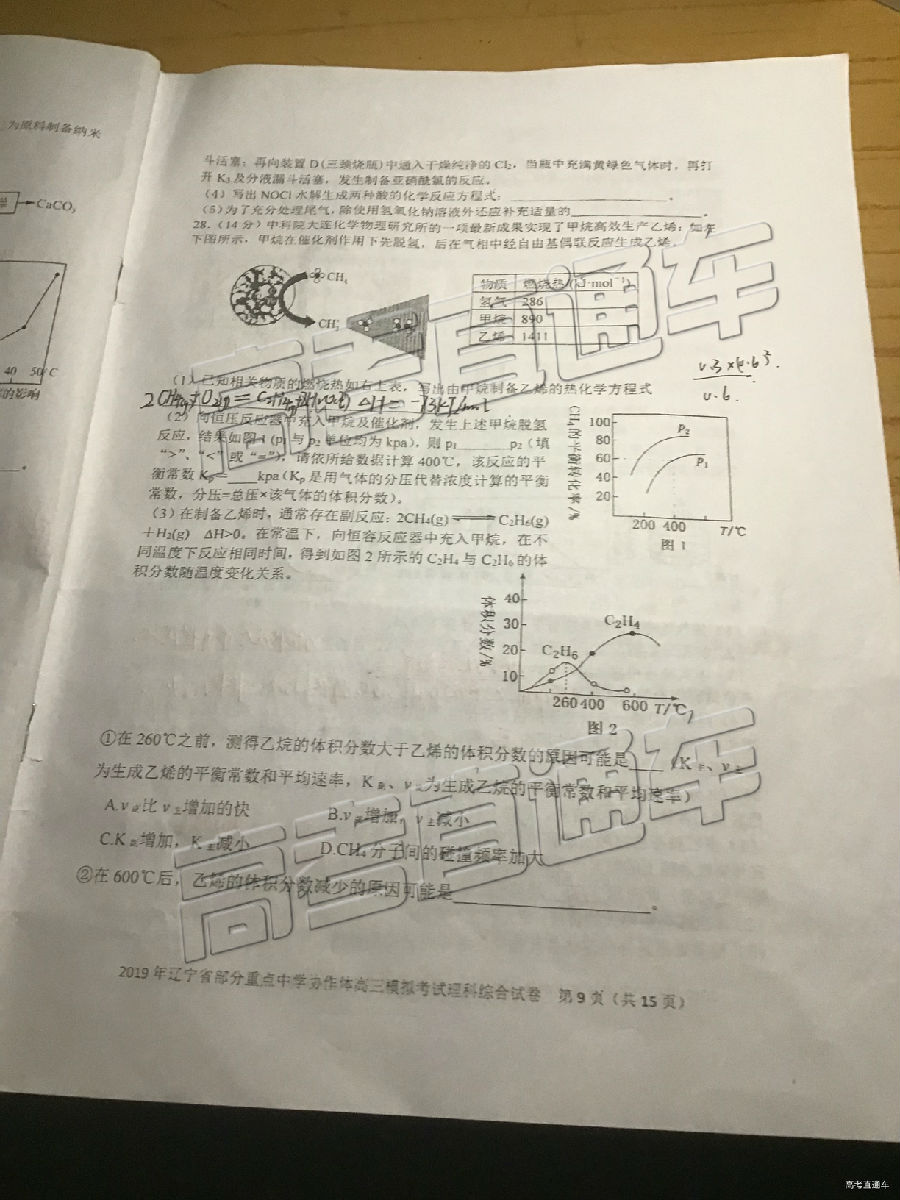 为原料制备纳米
CaCO₃
40 50/℃
的影响
斗活塞；再向装置 D(三颈烧瓶)中通入干燥纯净的 Cl₂，当瓶中充满黄绿色气体时，再打
开 K₃及分液漏斗活塞，发生制备亚硝酰氯的反应。
（4）写出 NOCl 水解生成两种酸的化学反应方程式：____________。
（5）为了充分处理尾气，除使用氢氧化钠溶液外还应补充适量的____________。
28.（14 分）中科院大连化学物理研究所的一项最新成果实现了甲烷高效生产乙烯：如在
下图所示，甲烷在催化剂作用下先脱氢，后在气相中经自由基偶联反应生成乙烯。
CH₄
CH₃
物质 燃烧热/(kJ·mol⁻¹)
氢气 286
甲烷 890
乙烯 1411
（1）已知相关物质的燃烧热如右上表，写出由甲烷制备乙烯的热化学方程式
（2）向恒压反应器中充入甲烷及催化剂，发生上述甲烷脱氢
反应，结果如图 1 (p₁ 与 p₂ 单位均为 kpa)，则 p₁____p₂（填
“>”、“<” 或 “=”)，请依所给数据计算 400℃，该反应的平
衡常数 Kp=____kpa（Kp 是用气体的分压代替浓度计算的平衡
常数，分压=总压×该气体的体积分数）。
CH₄的平衡转化率/%
100
80
60
40
20
P₂
P₁
200 400 T/℃
图 1
（3）在制备乙烯时，通常存在副反应：2CH₄(g) ⇌ C₂H₆(g)
+H₂(g) ΔH>0。在常温下，向恒容反应器中充入甲烷，在不
同温度下反应相同时间，得到如图 2 所示的 C₂H₄ 与 C₂H₆ 的体
积分数随温度变化关系。
体积分数/%
40
30
20
10
C₂H₄
C₂H₆
260 400 600 T/℃
图 2
①在 260℃之前，测得乙烷的体积分数大于乙烯的体积分数的原因可能是____（K 主、v 主
为生成乙烯的平衡常数和平均速率，K 副、v 副为生成乙烷的平衡常数和平均速率）
A.v 副比 v 主增加的快 B.v 副增加，v 主减小
C.K 副增加，K 主减小 D.CH₄ 分子间的碰撞频率加大
②在 600℃后，乙烯的体积分数减少的原因可能是____________。
2019 年辽宁省部分重点中学协作体高三模拟考试理科综合试卷 第 9 页（共 15 页）
高考直通车
高考直通车
高考直通车